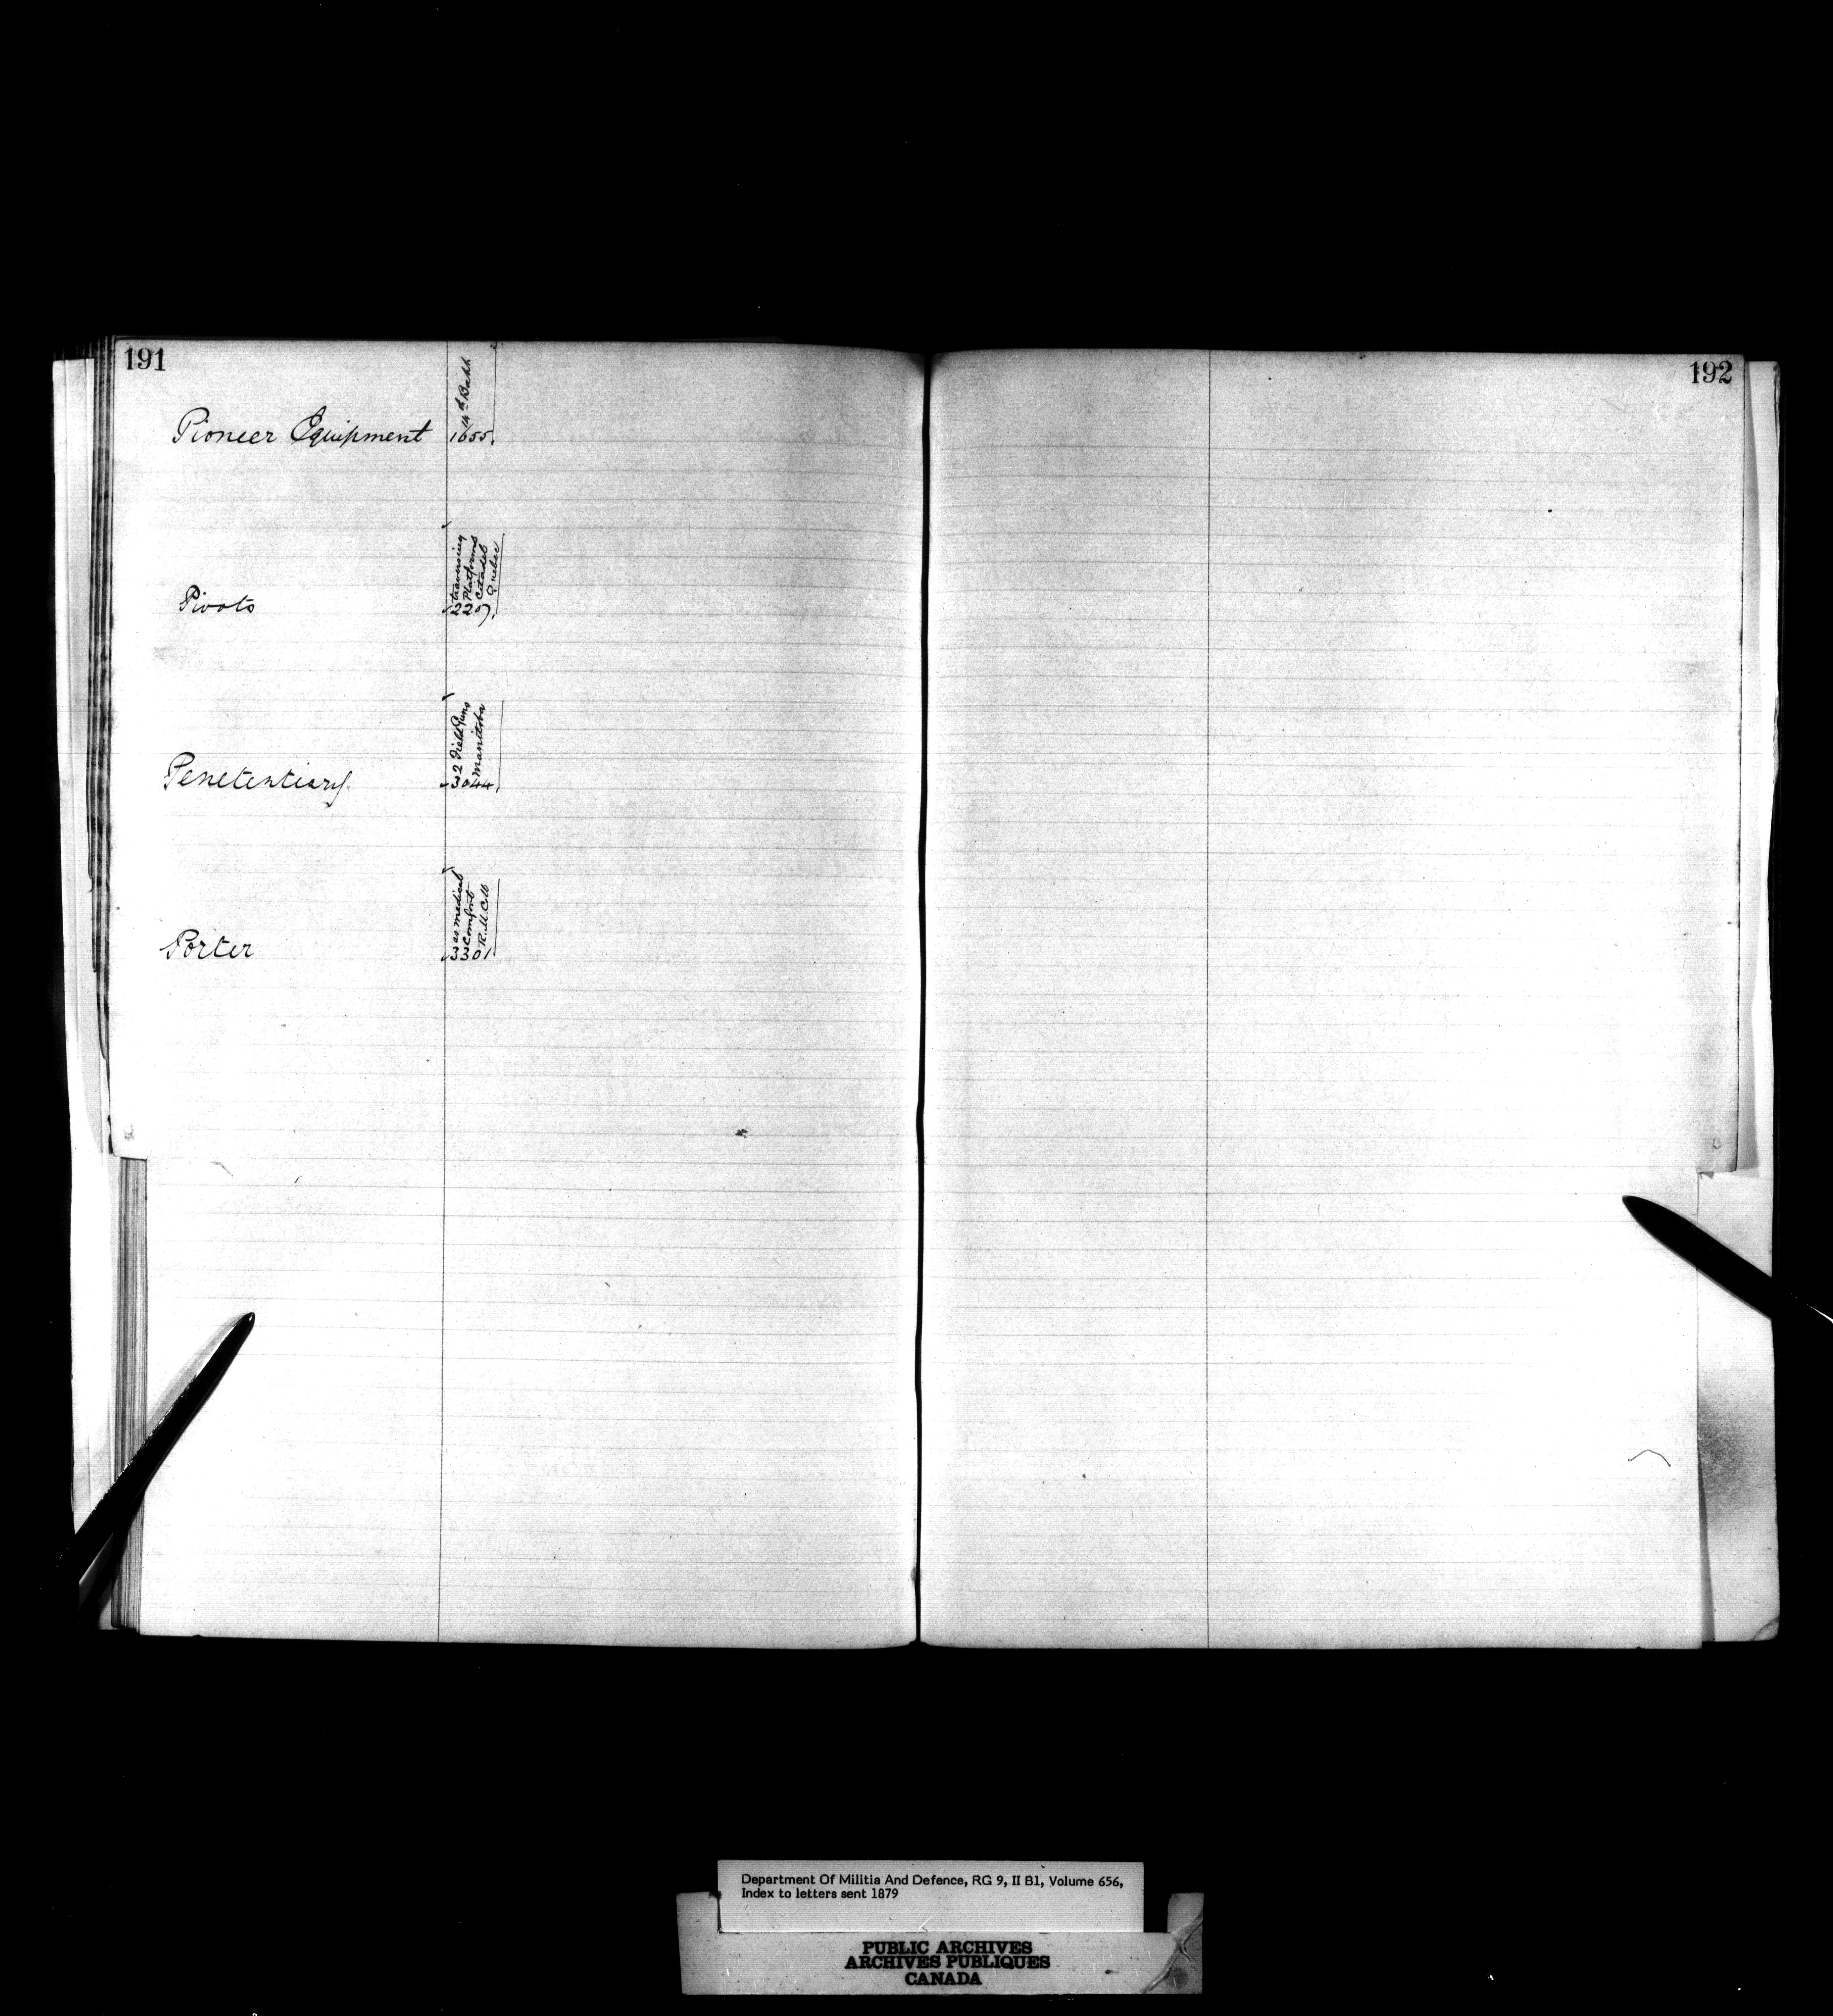 191
192
Pioneer Equipment
14th Battn
1655.
Pivots
traversing
Platforms
Citadel
Quebec
2207.
Penetentiary
2 Field Guns
Manitoba
3044
Porter
as medical
Comfort
R.M.Coll
3301
Department Of Militia And Defence, RG 9, II B1, Volume 656,
Index to letters sent 1879
PUBLIC ARCHIVES
ARCHIVES PUBLIQUES
CANADA